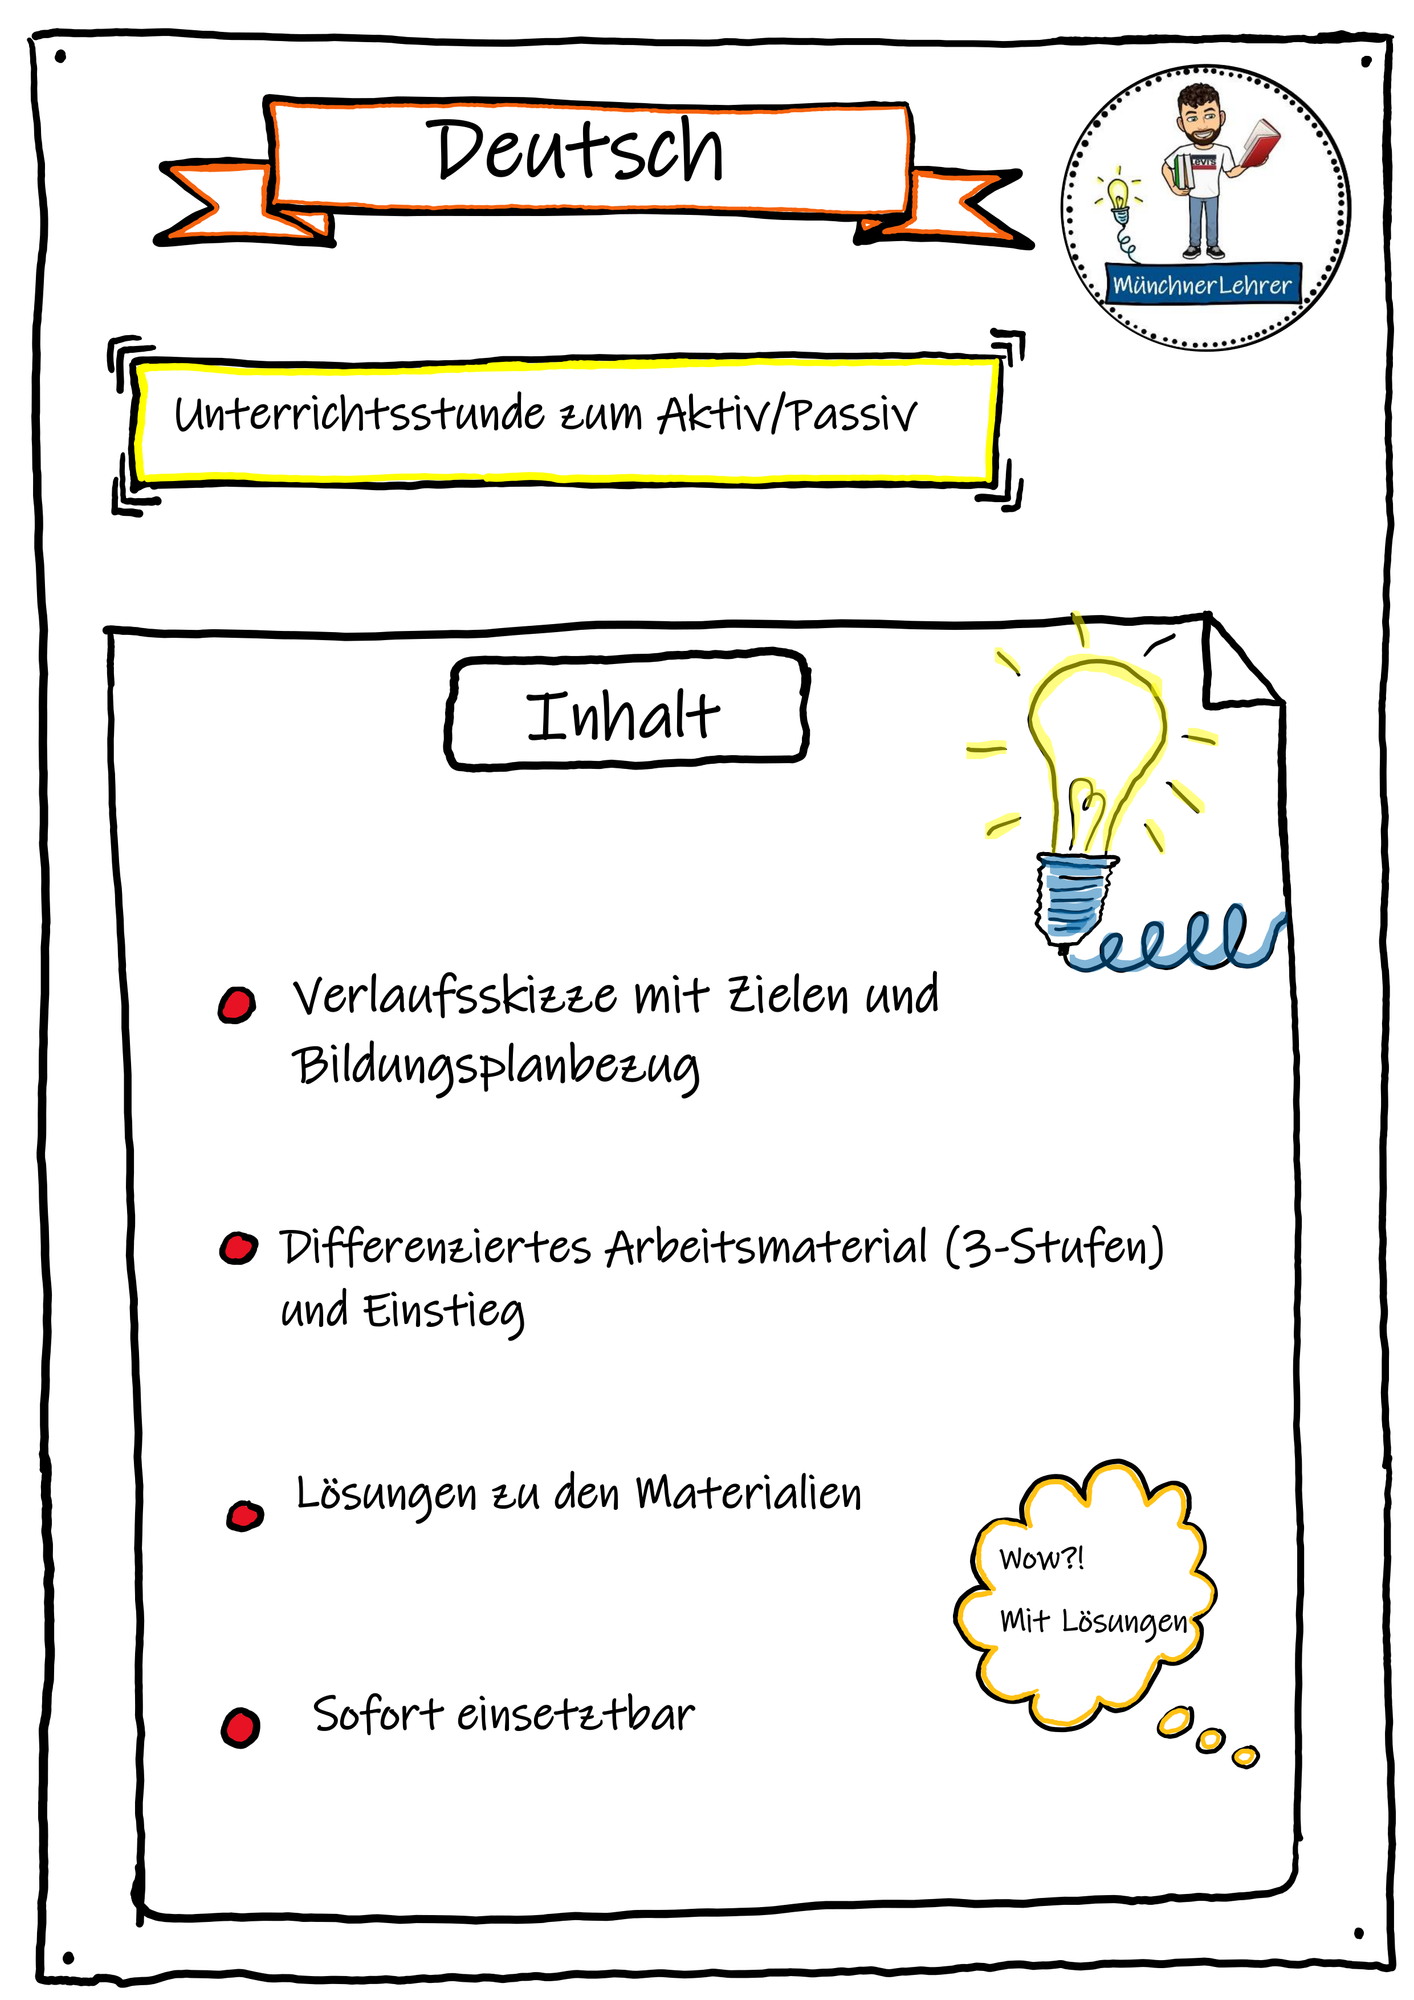 Deutsch
LEVI'S
MünchnerLehrer
Unterrichtsstunde zum Aktiv/Passiv
Inhalt
Verlaufsskizze mit Zielen und
Bildungsplanbezug
Differenziertes Arbeitsmaterial (3-Stufen)
und Einstieg
Lösungen zu den Materialien
Wow?!
Mit Lösungen
Sofort einsetztbar